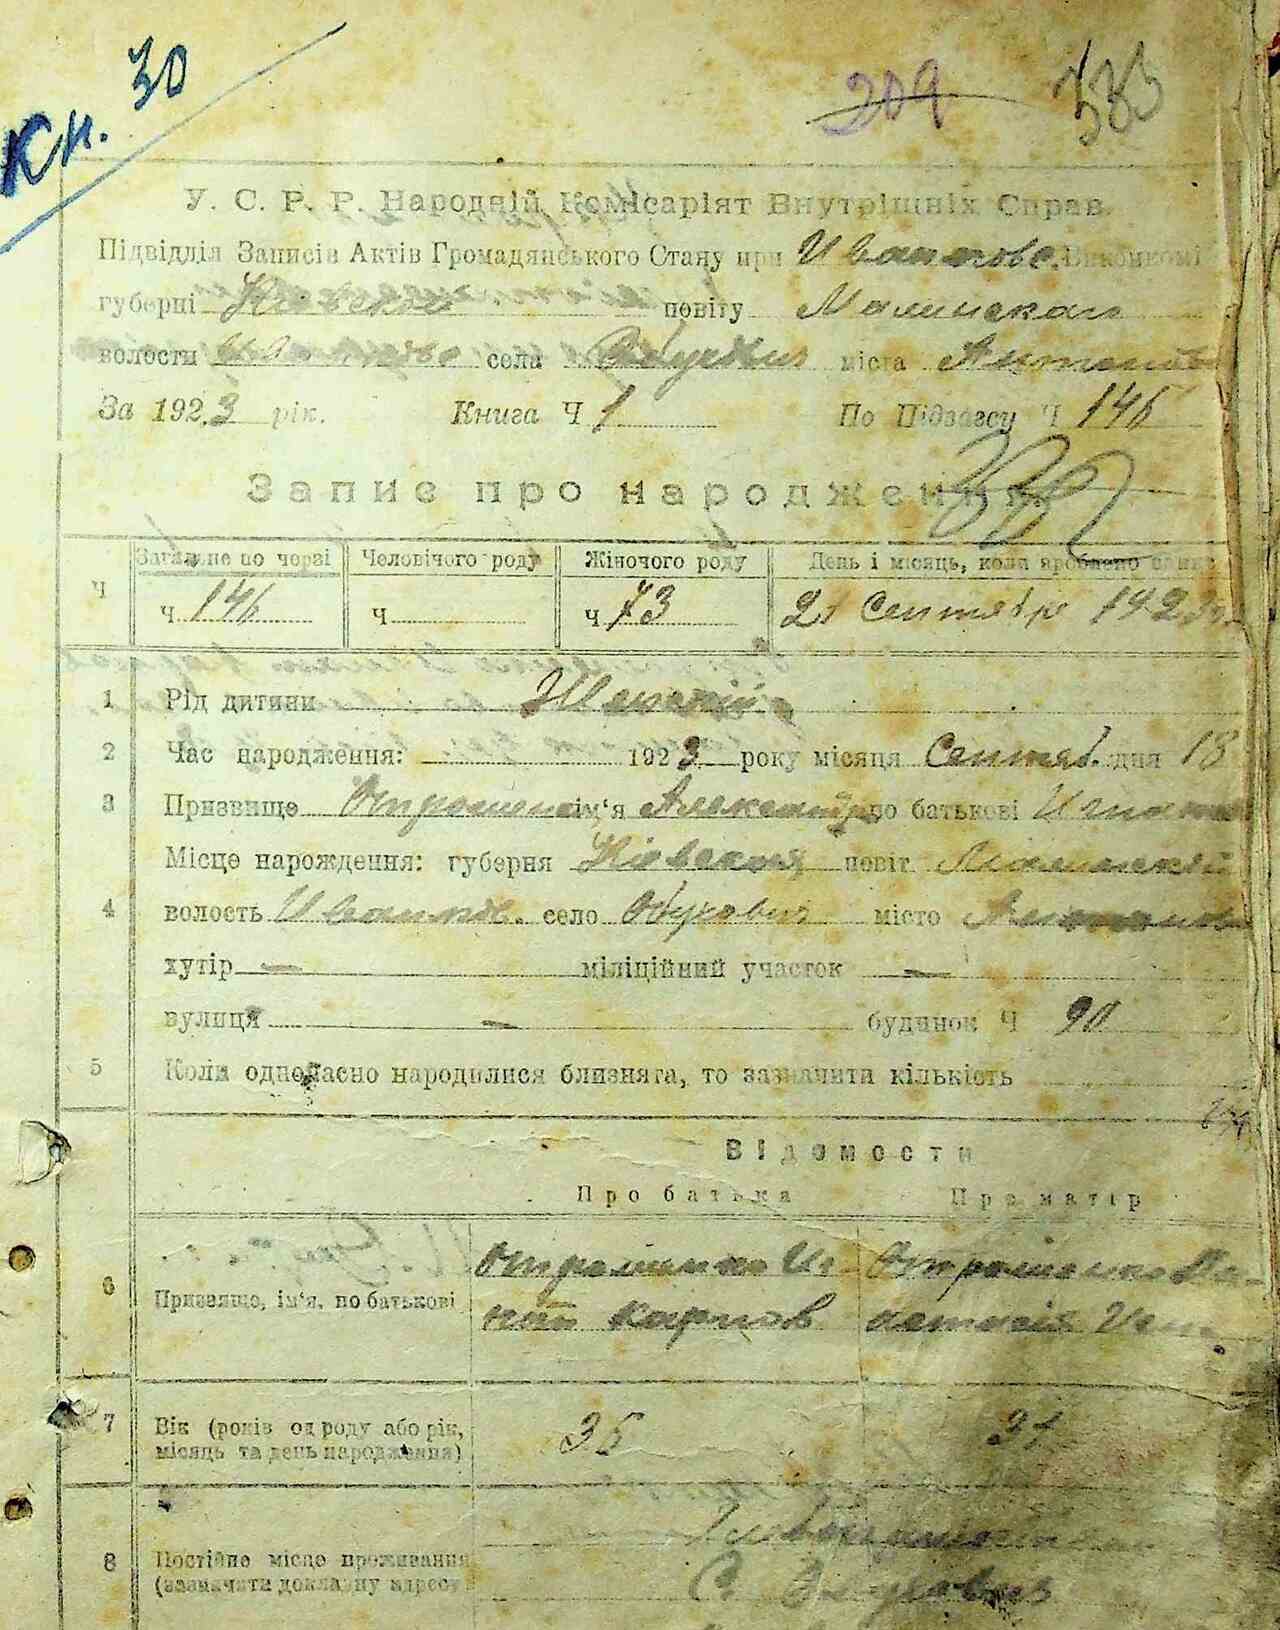 Кн. 30
209
У. С. Р. Р. Народній Комісаріят Внутрішніх Справ.
Підвідділ Записів Актів Громадянського Стану при Иванков. Виконкомі
губерні Киевской повіту Малинскаго
волости села Обуховичи міста
За 1923 рік. Книга Ч 1 По Підзагсу Ч 146
Запис про народження
Ч Загальне по черзі Человічого роду Жіночого роду День і місяць, коли зроблено запис
ч. 146 ч ч. 73 21 Сентября 1923 г.
1 Рід дитини Женский
2 Час народження: 1923 року місяця Сентяб. дня 18
3 Призвище ім'я Александра по батькові Игнатов
Місце нарождення: губерня Киевская повіт Малинский
4 волость Иванков. село Обуховичи місто
хутір — міліційний участок —
вулиця — будинок Ч 90
5 Коли одночасно народилися близнята, то зазначити кількість
Відомости
Про батька Про матір
6 Призвище, ім'я, по батькові
Карпов
7 Вік (років од роду або рік, місяць та день народження) 35
8 Постійне місце проживання (зазначити докладну адресу)
С. Обуховичи